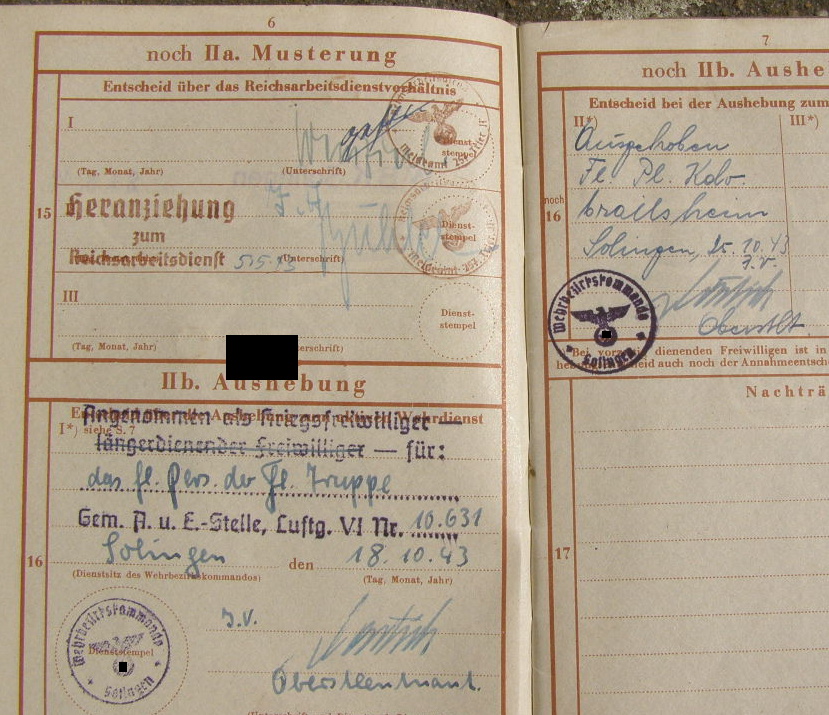 6
noch IIa. Musterung
Entscheid über das Reichsarbeitsdienstverhältnis
I
Dienst-
stempel
(Tag, Monat, Jahr) (Unterschrift)
15
Heranziehung
zum
Reichsarbeitsdienst
Dienst-
stempel
(Unterschrift)
III
Dienst-
stempel
(Tag, Monat, Jahr)
IIb. Aushebung
I*) siehe S. 7
Angenommen als Kriegsfreiwilliger
längerdienender Freiwilliger — für:
das fl. Pers. der Fl. Truppe
Gem. A. u. E.-Stelle, Luftg. VI Nr. 10.631
16
Solingen den 18.10.43
(Dienstsitz des Wehrbezirkskommandos) (Tag, Monat, Jahr)
J.V.
Oberstleutnant.
Wehrbezirkskommando
Solingen
Dienststempel
7
noch IIb. Aushe
Entscheid bei der Aushebung zum
II*) III*)
noch
16
Ausgehoben
Fl. Pl. Kdo.
Crailsheim
Solingen, 25.10.43
J.V.
Oberstlt.
Wehrbezirkskommando
Solingen
dienenden Freiwilligen ist in
auch noch der Annahmeentsch
Nachträ
17